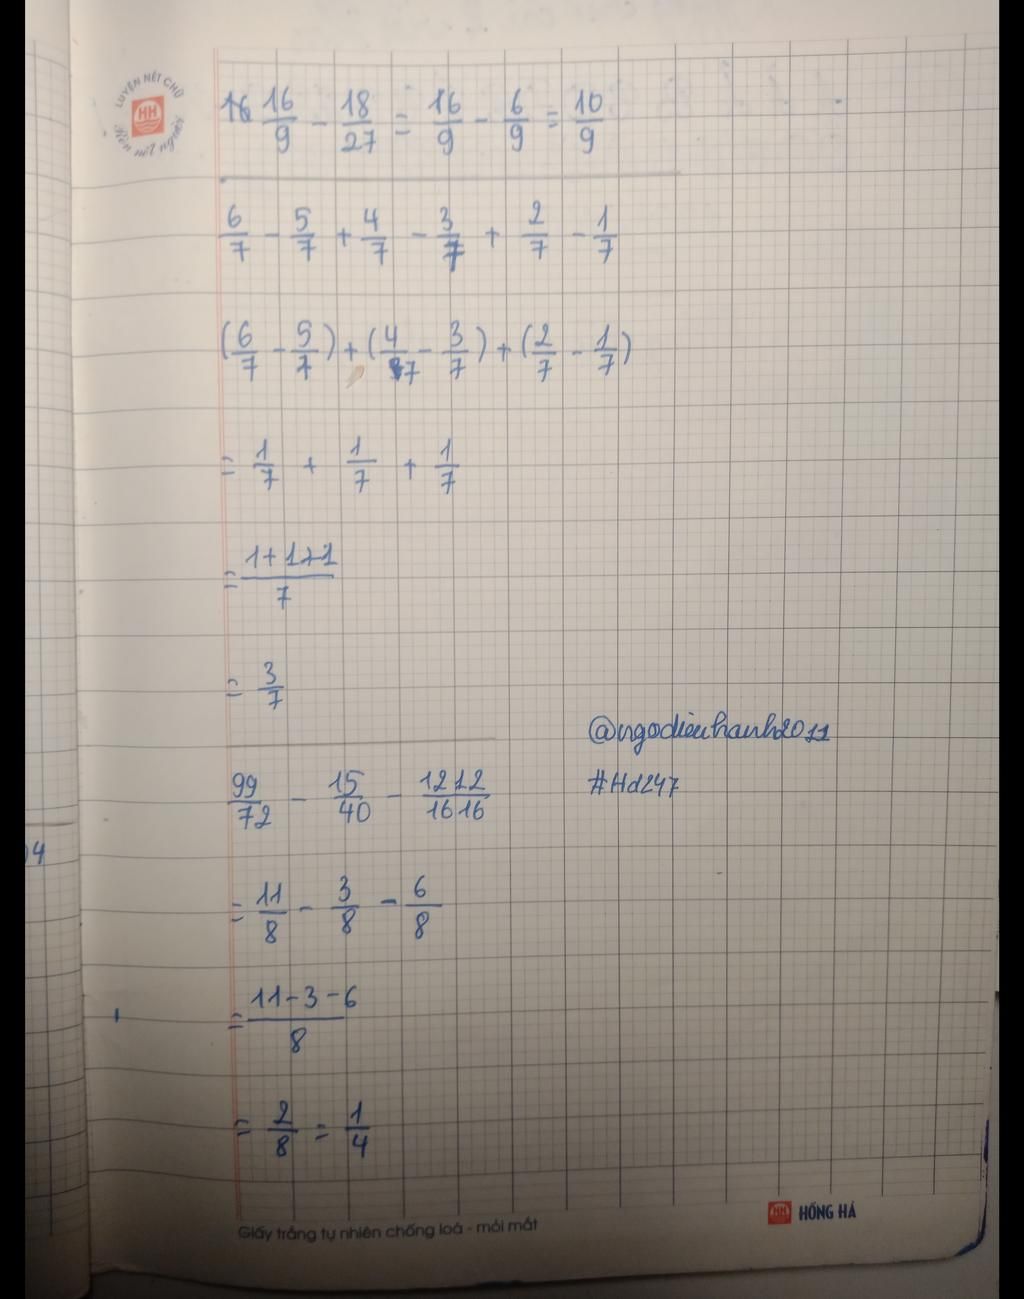 LUYỆN NÉT CHỮ
HH
Rèn nết người
16 16/9 - 18/27 = 16/9 - 6/9 = 10/9
6/7 - 5/7 + 4/7 - 3/7 + 2/7 - 1/7
(6/7 - 5/7) + (4/7 - 3/7) + (2/7 - 1/7)
= 1/7 + 1/7 + 1/7
= 1+1+1/7
= 3/7
@ngodieuhanh2011
99/72 - 15/40 - 1212/1616
#Hd247
04
= 11/8 - 3/8 - 6/8
= 11-3-6/8
= 2/8 = 1/4
HH HỒNG HÀ
Giấy trắng tự nhiên chống loá - mỏi mắt